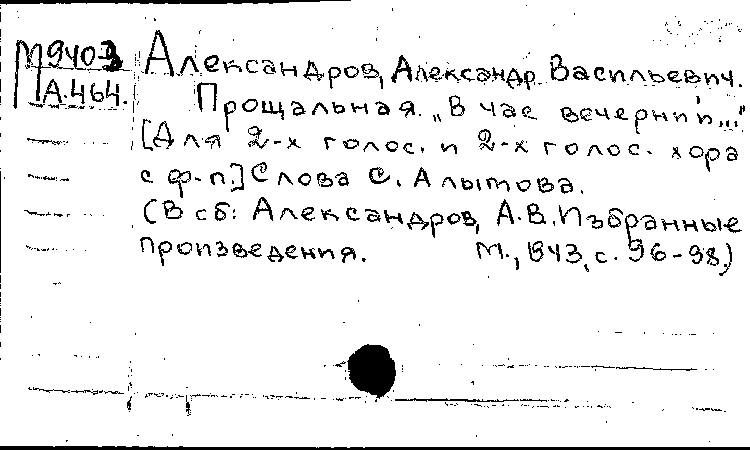 М9403
А.464.
Александров, Александр Васильевич.
Прощальная. „В час вечерний..."
[Для 2-х голос. и 2-х голос. хора
с ф-п.] Слова С. Алымова.
(В сб: Александров, А.В. Избранные
произведения. М., 1943, с. 96-98.)